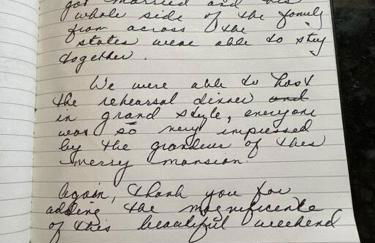 got married and his
whole side of the family
from across the
states were able to stay
together.
We were able to host
the rehearsal dinner and
in grand style, everyone
was so very impressed
by the grandeur of this
merry mansion
Again, thank you for
adding the magnificence
of this beautiful weekend